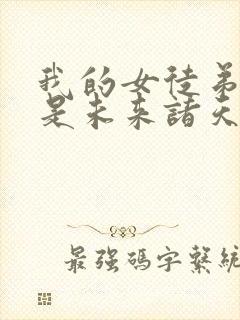 我的女徒弟
是未來諸天
最強碼字繫統